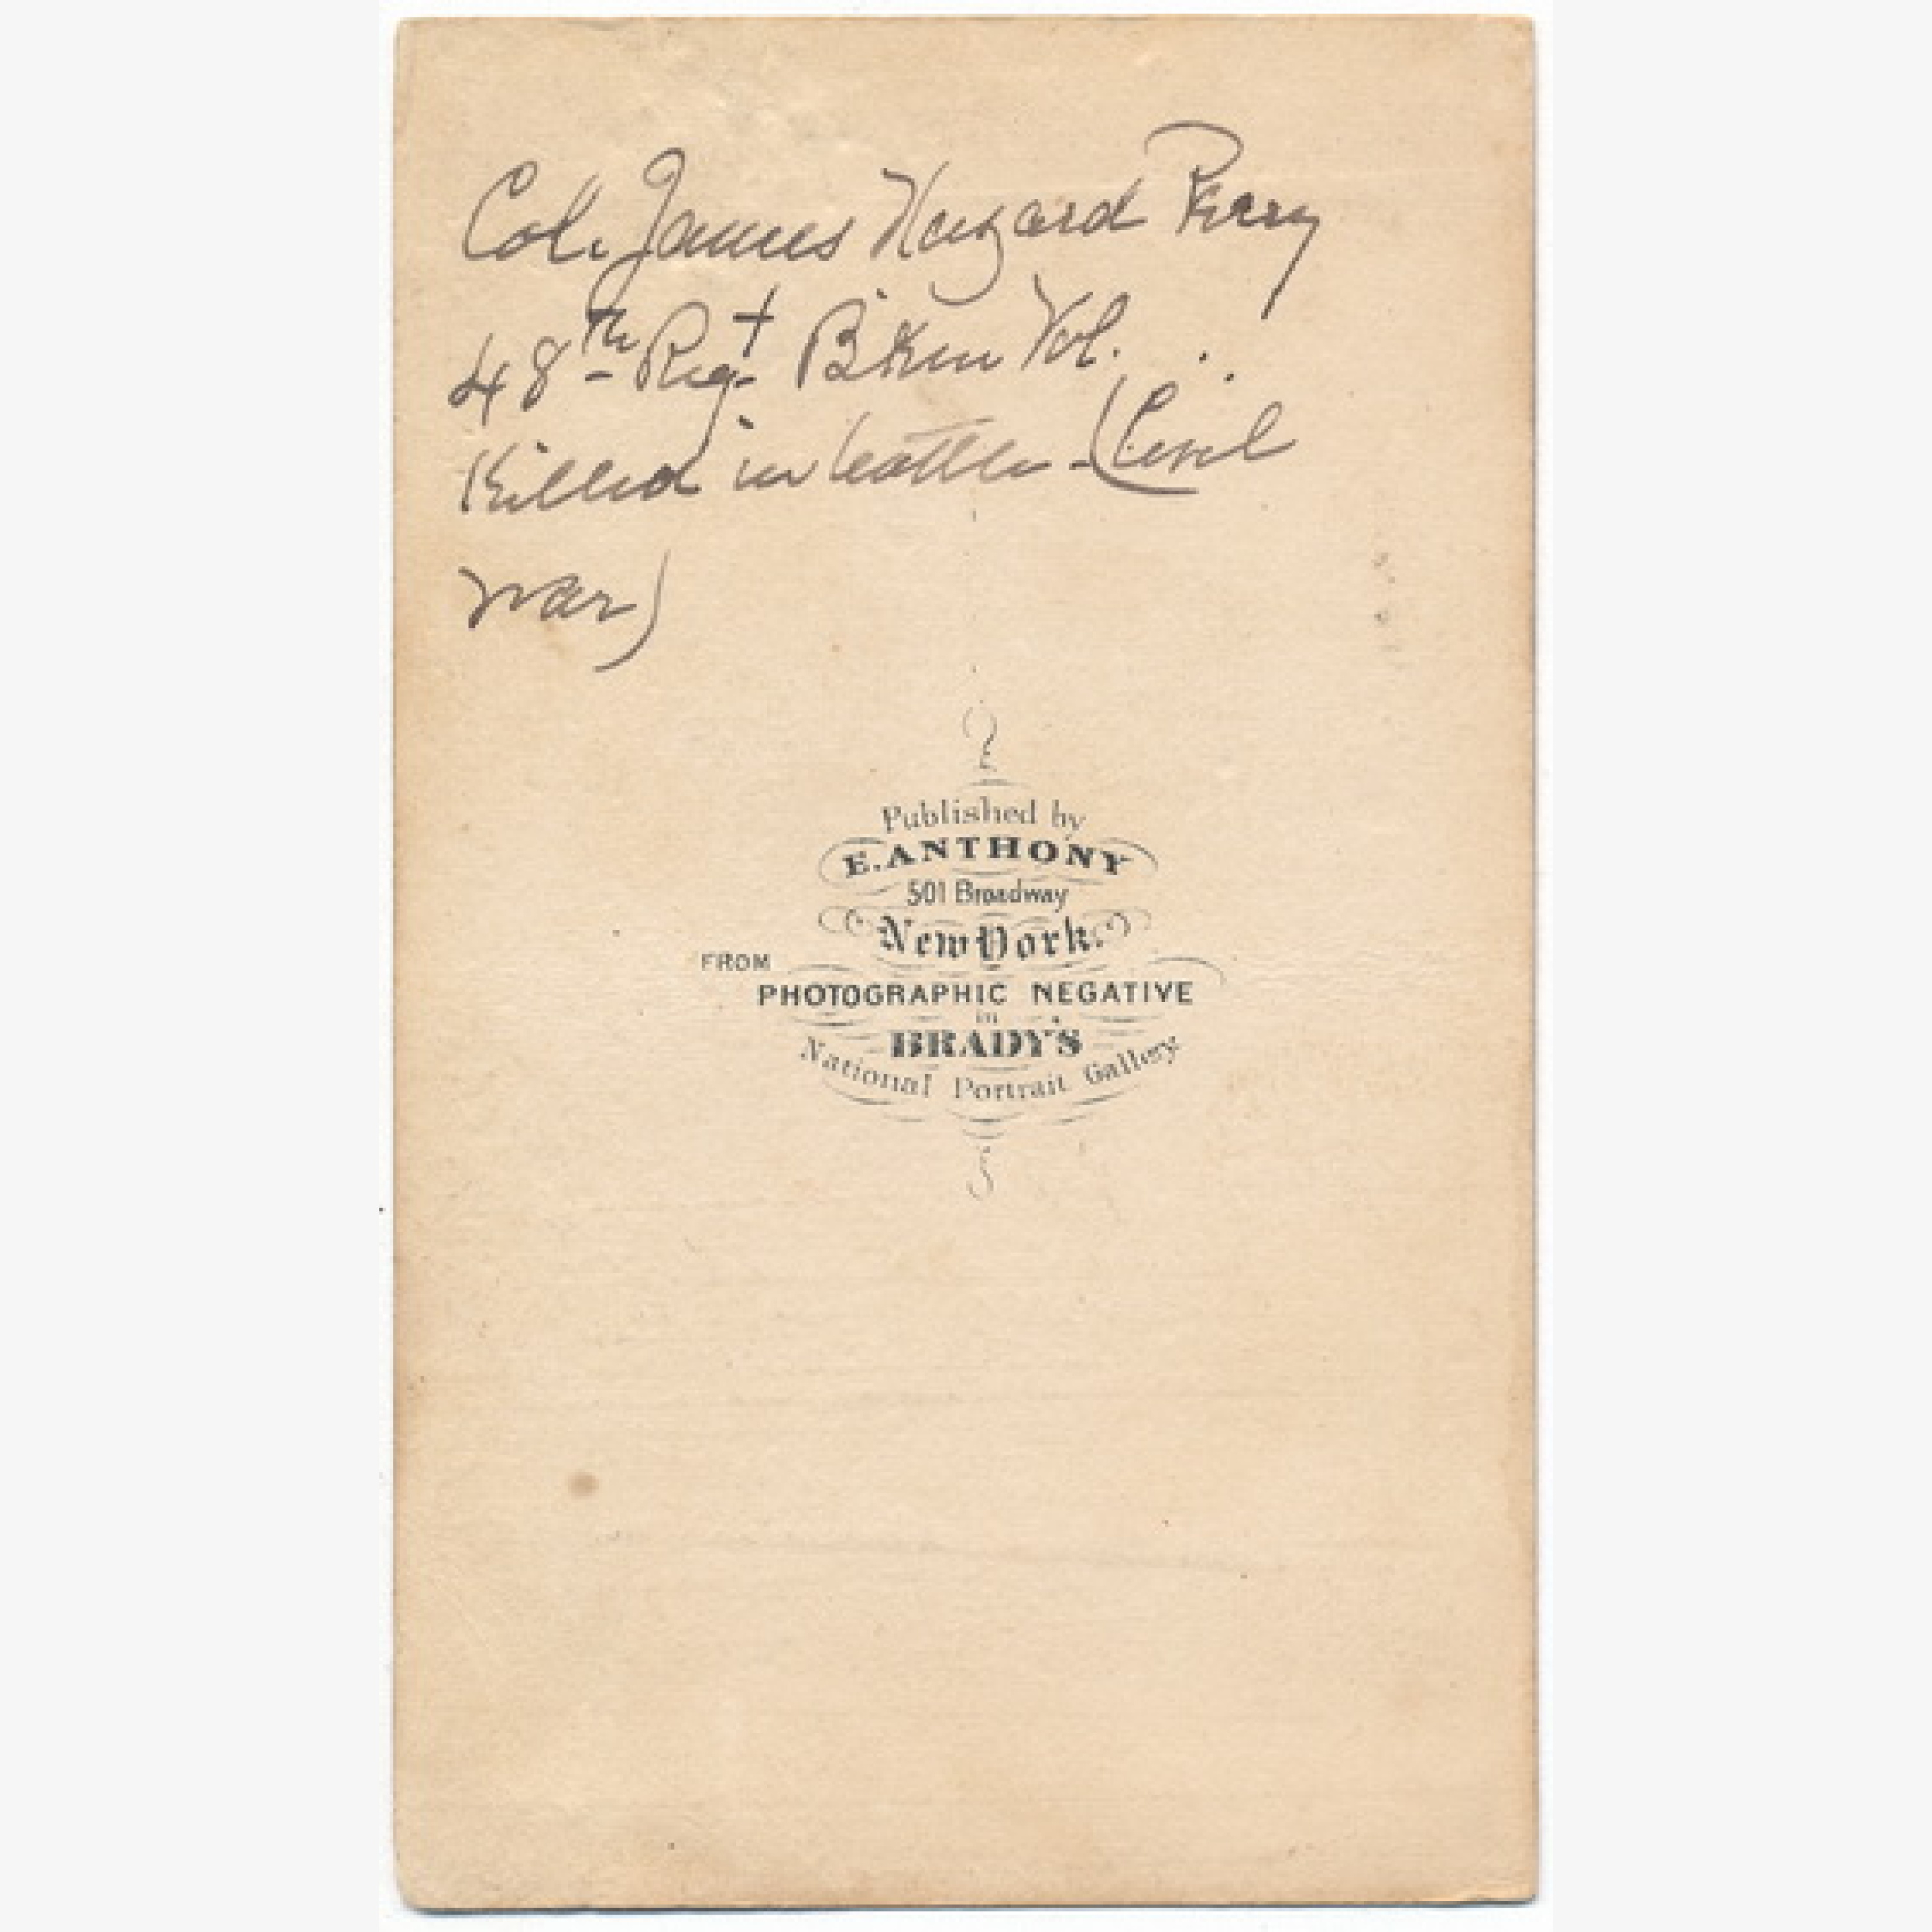 Col. James Hazard Perry
48th Regt B'klyn Vol.
Killed in battle - (Civil
War)
Published by
E. ANTHONY
501 Broadway
New York.
FROM
PHOTOGRAPHIC NEGATIVE
in
BRADY'S
National Portrait Gallery.